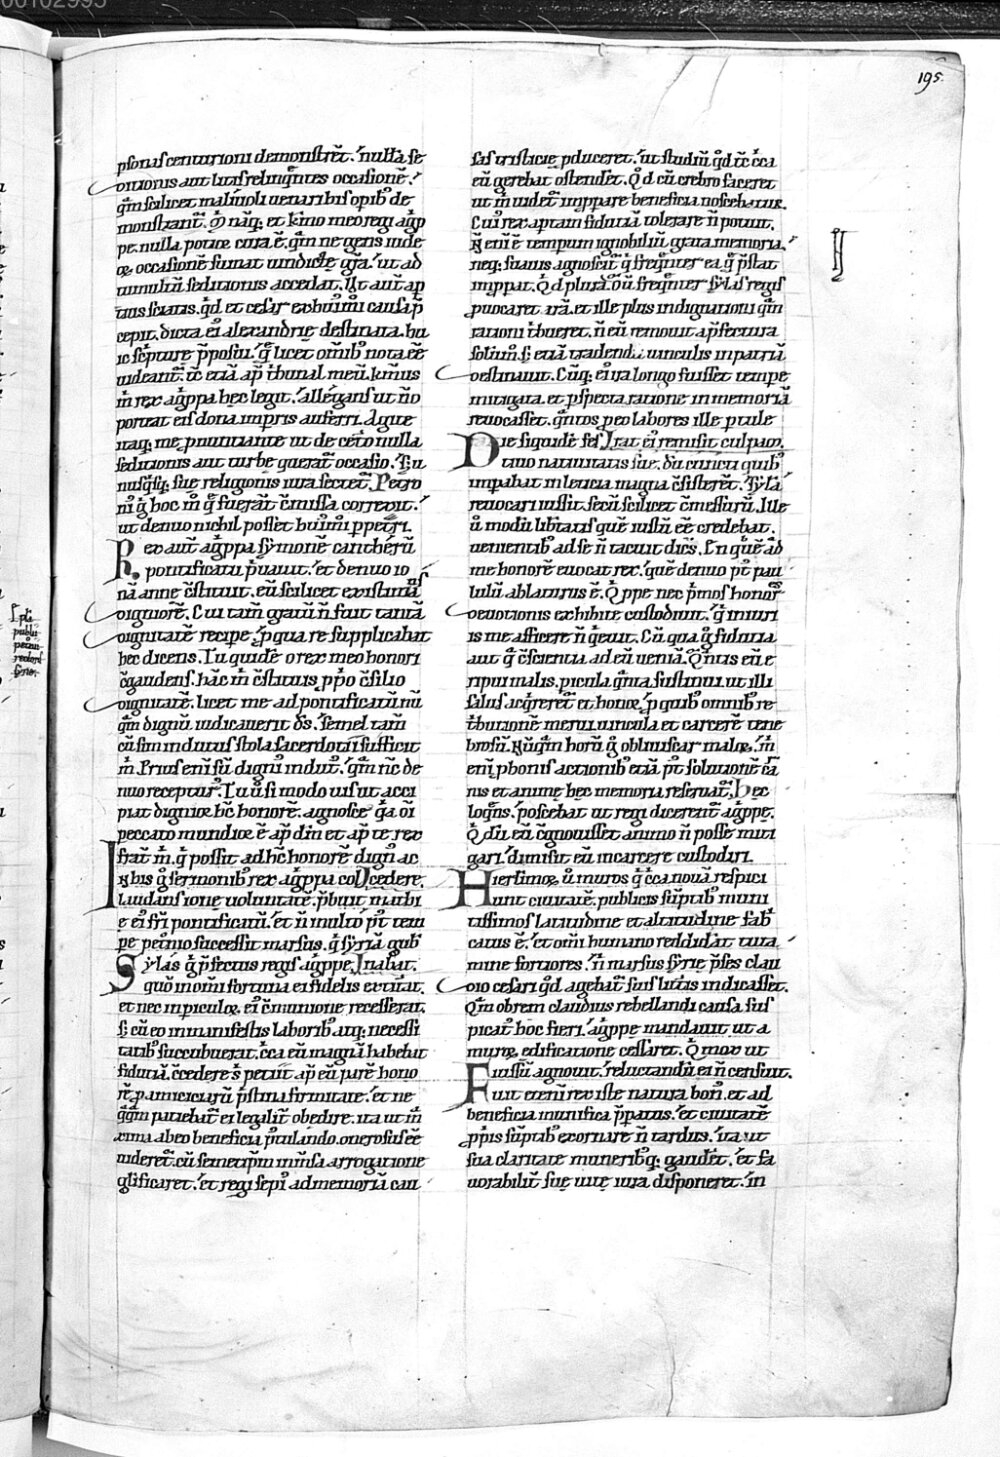 195
psonas centurioni demonstret. nulla se
ditionis aut litis relinqntes occasione.
qm scilicet malivoli venaribus opib de
monstrant. et kmo meo regi agp
pe. nulla potior cura e. qm ne gens iude
oꝝ occasione sumat vindicte gra. ut ad
tumultu seditionis accedat. Ut aut ap
tius sciatis. qd et cesar ex huimi causa p
cepit. dicta ei alexandrie destinata. hu
ic scpture pposui. q licet omib nota ee
videant. tc etia ap tbunal meu. kmus
m rex agppa hec legit. allegans ut no
poterat eis dona impris auferri. Agite
itaq; me pnuntiante ut de ceto nulla
seditionis aut turbe querat occasio. Su
nusqsq; sue religionis iura sectet. Petro
ni g hoc m q fuerat cmissa correxit.
ut denuo nichil posset huimi ppetri.
Rex aut agppa symone cantheru
pontificatu pvauit. et denuo io
na anne cstituit. eu scilicet existimas
digniore. Cui tam gratu n fuit tanta
dignitate recipe. p qua re supplicabat
hec dicens. Tu quide o rex meo honori
cgaudens. hac m cstituis pprio csilio
dignitate. licet me ad pontificatu nu
qm dignu iudicauerit ds. Semel tam
cu sim indutus stola sacerdotii sufficit
m. Prius eni su digni indut. qm nc de
nuo receptur. Tu u si modo uis ut acci
piat dignior hc honore. agnosce qa oi
peccato mundior e ap dm et ap te rex
frat m. q possit ad hc honore dign ac
His g sermonib rex agppa co cedere.
laudans ione voluntate. pbuit mathi
e ei fri pontificatu. et n multo pt tem
pe petnio successit marsus. q syria gub
Sylas g pfectus regis agppe nabat.
quo i omi fortuna ei fidelis extitat.
et nec in piculoꝝ. ei cmunione recesserat.
s; cu eo in manifestis laborib atq; necessi
tatib succubuerat. cca eu magna habebat
fiducia. ccedere s petiit ap eu pare hono
re. p amiciciaru pstina firmitate. et ne
qqm patiebat ei legalit obedire. ita ut m
xima ab eo beneficia ptulando. onerosus ee
videret. cu semetipm inmsa arrogatione
glificaret. et regi sepi ad memoria cau
sas tristicie pduceret. ut studiu qd tc cca
eu gerebat ostendet. Qd cu crebro faceret
ut m videt impprare beneficia noscebatur.
Cui rex aptam fiducia tolerare n potuit.
N eni e tempum ignobiliu grata memoria.
neq; suauis agnoscit q freqnter ea q pstat
imppat. Qd plura. Ou freqnter sylas regis
puocaret ira. et ille plus indignationi qm
rationi tbueret. n eu remouit a pfectura
solum. s; etia tradendu vinculis in patria
destinauit. Cuq; ei ira longo fuisset tempe
mitigata. et pspecta ratione in memoria
reuocasset. qntos p eo labores ille ptule
Die siquide fes rat ei remisit culpam.
tiuo natiuitatis sue. du cuncti quib
impabat in leticia magna csisteret. Syla
reuocari iussit secu scilicet cmessuru. Ille
u modu libtatis que iustu ee credebat.
venientib ad se n tacuit dics. In que ad
me honore euocat rex. que denuo pt pau
lulu ablaturus e. Q ppe nec pmos honor
deuotionis exhibite custodiuit. q iniuri
is me afficere n qeuit. Cu qua g fiducia
aut q csciencia ad eu venia. Qntis eu e
ripui malis. picula qnta sustinui ut illi
salus acqreret et honor. p quib omnib re
tbutione merui vincula et carcere tene
brosu. Nuqm horu g obliuiscar maloꝝ. m
eni p bonis actionib etia pt solutione ca
nis et anime hec memoria reseruat. Hec
loqns. poscebat ut regi dicerent agppe.
Qd u eu cgnouisset animo n posse miti
gari. dimisit eu in carcere custodiri.
Hierlimoꝝ u muros q cca noua respici
unt ciuitate. publicis suptib muni
tissimos latitudine et altitudine fab
catus e. et omi humano reddidat cuta
mine fortiores. n marsus syrie pses clau
dio cesari qd agebat suis littis indicasset.
Qm obrem claudius rebellandi causa sus
picat hoc fieri. agppe mandauit ut a
muroꝝ edificatione cessaret. Q mox ut
iussu agnouit. reluctandu ei n censuit.
Fuit eteni rex iste natura bon. et ad
beneficia munifica pparatus. et ciuitate
ppis suptib exornare n tardus. ita ut
sua claritate munerib q; gaudet. et fa
uorabiliu sue vite iura disponeret. in